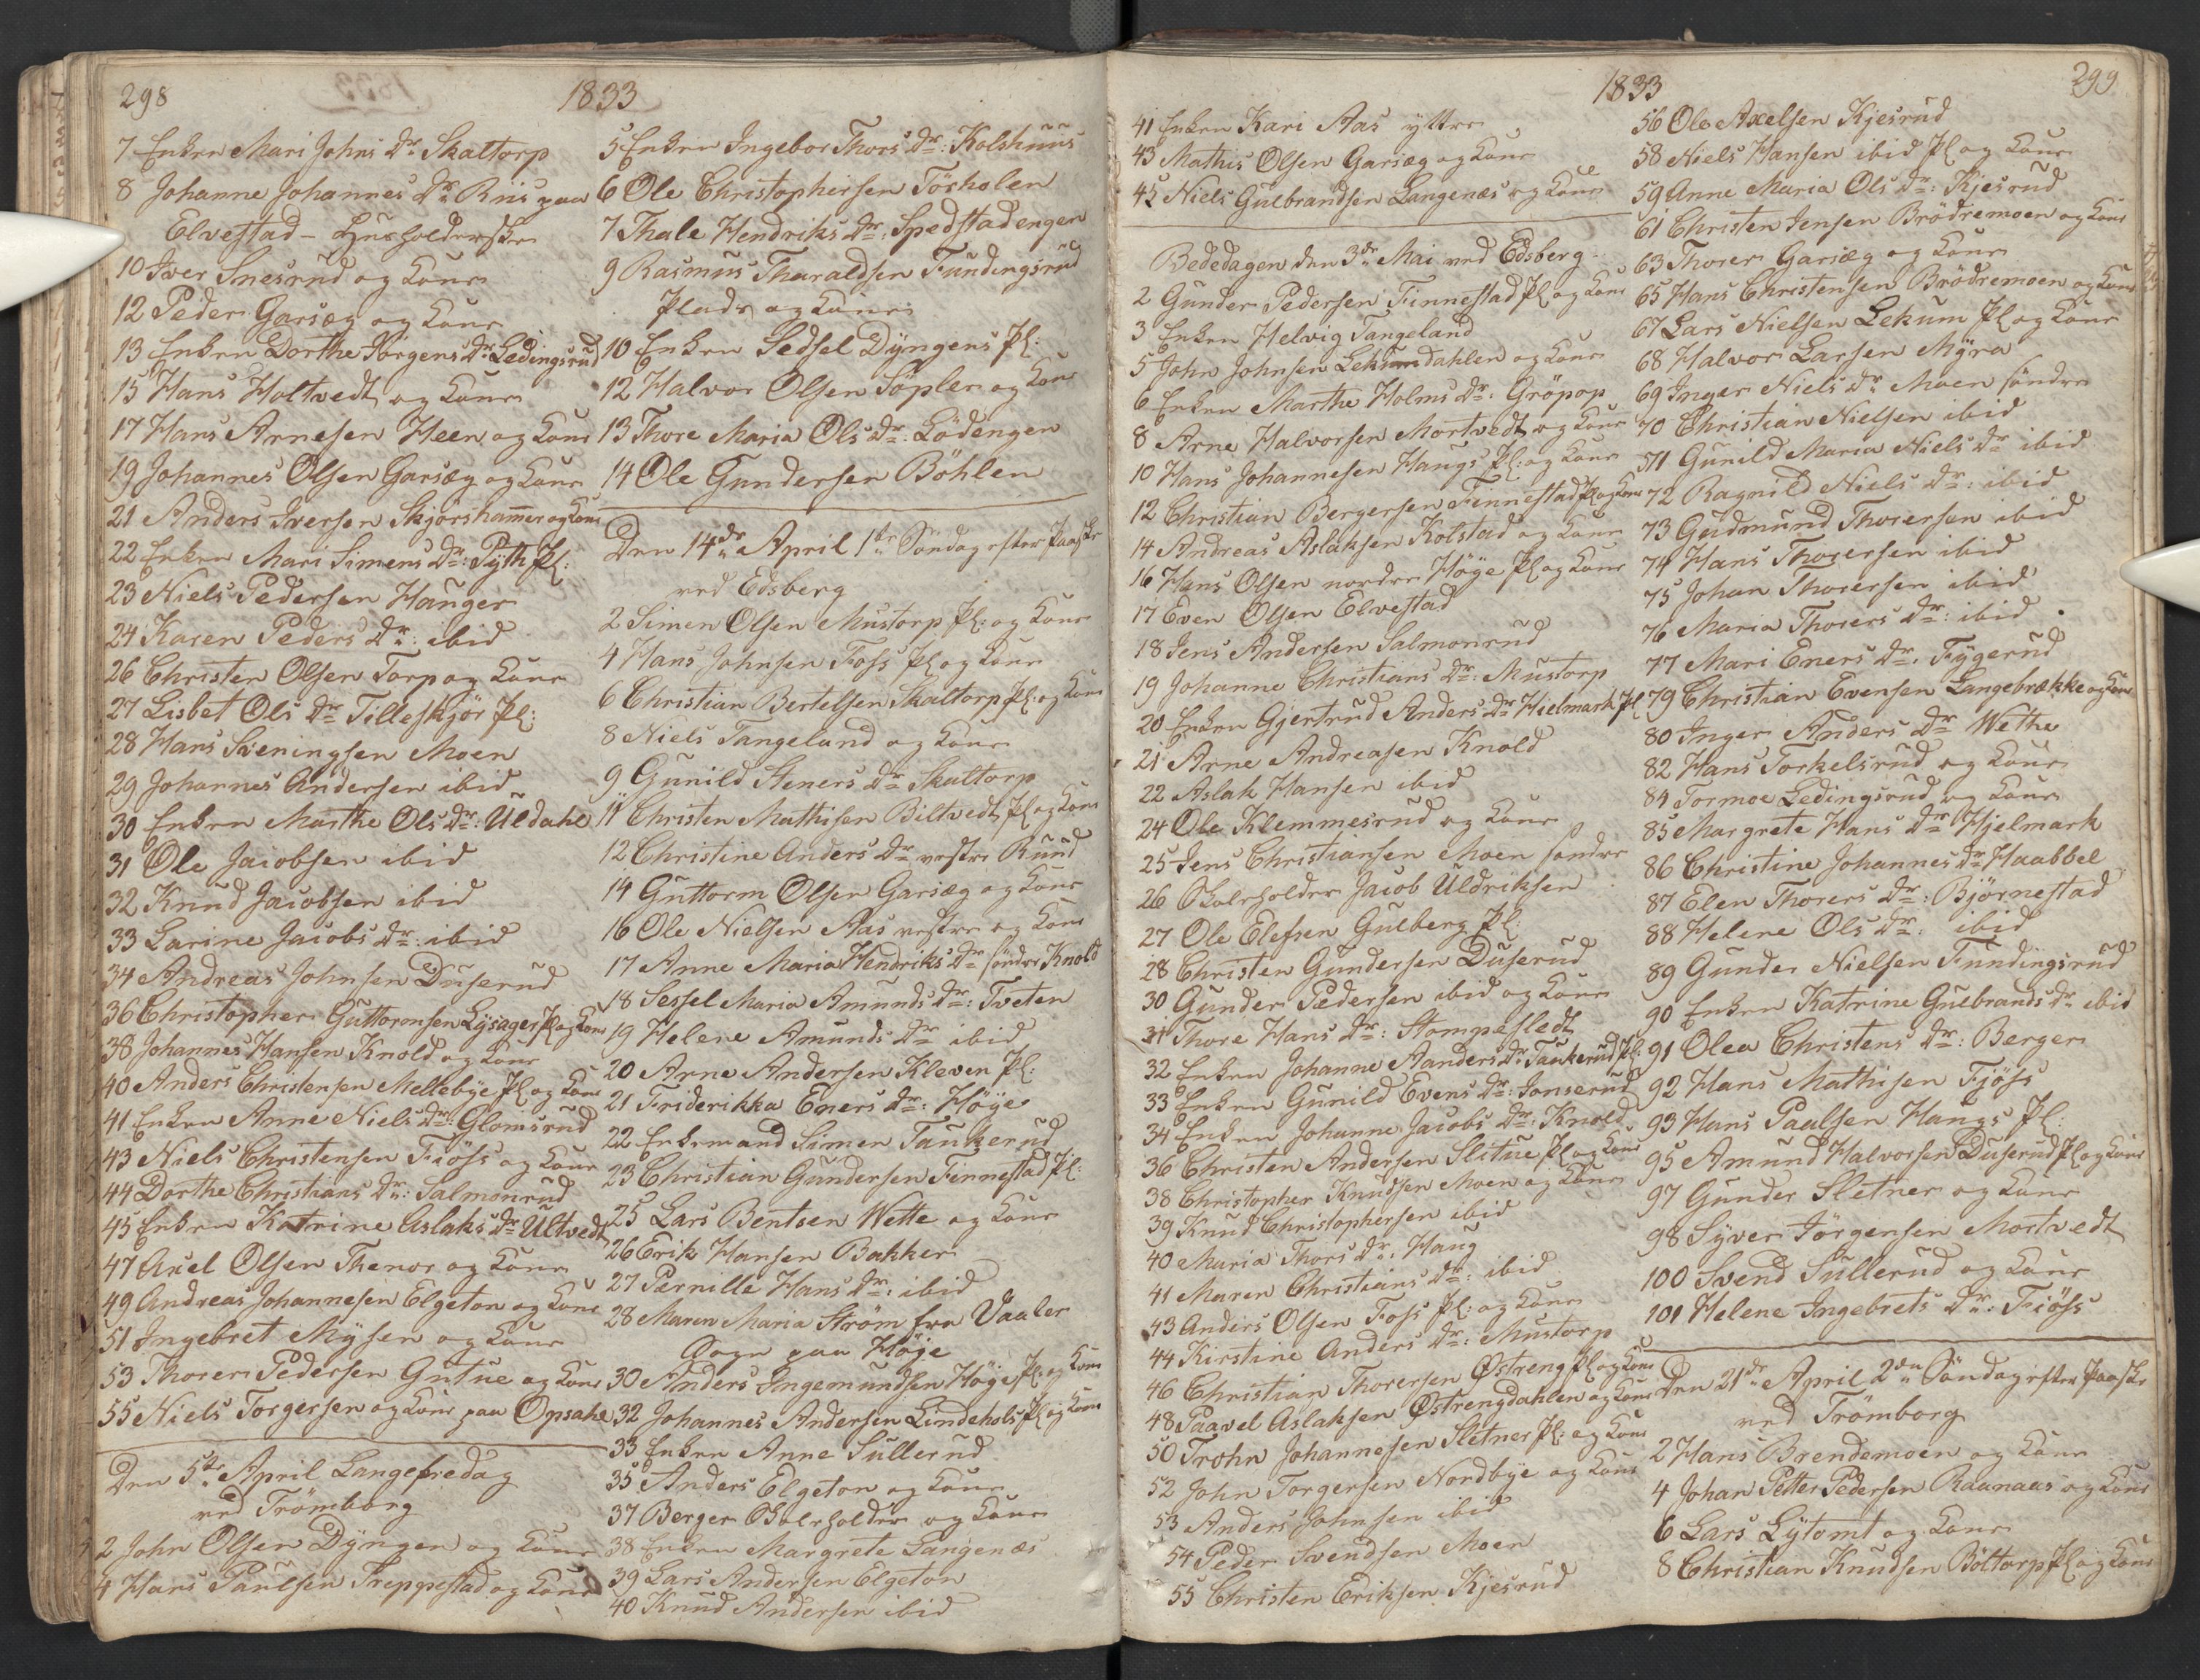 298
1833
7 Enken Mari Johns Dr Skaltorp
8 Johanne Johannes Dr Riis paa
Elvestad - Husholderske
10 Iver Snesrud og Kone
12 Peder Garsæg og Kone
13 Enken Dorthe Jörgens Dr Ledingsrud
15 Hans Holtvedt og Kone
17 Hans Arnesen Heen og Kone
19 Johannes Olsen Garsæg og Kone
21 Anders Iversen Skjørshammer og Kone
22 Enken Mari Simens Dr: Pyth Pl:
23 Niels Pedersen Hauger
24 Karen Peders Dr: ibid
26 Christen Olsen Torp og Kone
27 Lisbet Ols Dr Tilleskjør Pl:
28 Hans Sveningsen Moen
29 Johannes Andersen ibid
30 Enken Marthe Ols Dr: Uldahl
31 Ole Jacobsen ibid
32 Knud Jacobsen ibid
33 Larine Jacobs Dr: ibid
34 Andreas Johnsen Duserud
36 Christopher Guttormsen Lysager Pl og Kone
38 Johannes Hansen Knold og Kone
40 Anders Christensen Mellebye Pl og Kone
41 Enken Anne Niels Dr: Glomsrud
43 Niels Christensen Fiöss og Kone
44 Dorthe Christians Dr: Salmonrud
45 Enken Katrine Aslaks Dr Ultvedt
47 Axel Olsen Thenor og Kone
49 Andreas Johannesen Elgeton og Kone
51 Ingebret Mysen og Kone
53 Thorer Pedersen Gutue og Kone
55 Niels Torgersen og Kone paa Opsahl
Den 5te April Langefredag
ved Trömborg
2 John Olsen Dyngen og Kone
4 Hans Paulsen Treppestad og Kone
5 Enken Ingebor Thors Dr: Kolshuus
6 Ole Christophersen Töskolen
7 Thale Hendriks Dr: Spedstadengen
9 Rasmus Tharaldsen Fundingsrud
Plads og Kone
10 Enken Sedsel Dyngens Pl:
12 Halvor Olsen Söpler og Kone
13 Thore Maria Ols Dr: Lödengen
14 Ole Gundersen Böhlen
Den 14de April 1ste Söndag efter Paaske
ved Edsberg
2 Simen Olsen Mustorp Pl: og Kone
4 Hans Johnsen Foss Pl og Kone
6 Christian Bertelsen Skaltorp Pl: og Kone
8 Niels Tangeland og Kone
9 Gunild Steners Dr Skaltorp
11 Christen Mathisen Biltvedt Pl og Kone
12 Christine Anders Dr vestre Rund
14 Guttorm Olsen Garsæg og Kone
16 Ole Nielsen Aas vestre og Kone
17 Anne Maria Hendriks Dr söndre Knold
18 Sessel Maria Amunds Dr: Tveten
19 Helene Amunds Dr ibid
20 Arne Andersen Kleven Pl:
21 Friderikka Eners Dr: Höye
22 Enkemand Simen Taukerud
23 Christian Gundersen Finnestad Pl:
25 Lars Bentsen Wette og Kone
26 Erik Hansen Bakker
27 Pernille Hans Dr: ibid
28 Maren Maria Ström fra Vaaler
Sogn paa Höje
30 Anders Ingemundsen Höge Pl: og Kone
32 Johannes Andersen Lindehols Pl og Kone
33 Enken Anne Sullerud
35 Anders Elgeton og Kone
37 Berger Skoleholder og Kone
38 Enken Margrete Langenæs
39 Lars Andersen Elgeton
40 Knud Andersen ibid
1833
299
41 Enken Kari Aas yttre
43 Mathis Olsen Garsæg og Kone
45 Niels Gulbrandsen Langenæs og Kone
Bededagen den 3de Mai ved Edsberg
2 Gunder Pedersen Finnestad Pl og Kone
3 Enken Helvig Tangeland
5 John Johnsen Lekumdahlen og Kone
6 Enken Marthe Holms Dr: Gröpop
8 Arne Halvorsen Mortvedt og Kone
10 Hans Johannesen Haugs Pl: og Kone
12 Christian Bergersen Finnestad Pl og Kone
14 Andreas Aslaksen Kolstad og Kone
16 Hans Olsen nordre Höge Pl og Kone
17 Even Olsen Elvestad
18 Jens Andersen Salmonrud
19 Johanne Christians Dr: Mustorp
20 Enken Gjertrud Anders Dr Hielmark Pl
21 Arne Andreasen Knold
22 Aslak Hansen ibid
24 Ole Klemmesrud og Kone
25 Jens Christiansen Moen söndre
26 Skoleholder Jacob Uldriksen
27 Ole Elefsen Gulberg Pl:
28 Christen Gundersen Duserud
30 Gunder Pedersen ibid og Kone
31 Thore Hans Dr: Stompesledt
32 Enken Johanne Aanders Dr Taukerud Pl:
33 Enken Gunild Evens Dr: Jonserud
34 Enken Johanne Jacobs Dr: Knold
36 Christen Andersen Slitue Pl og Kone
38 Christopher Knudsen Moen og Kone
39 Knud Christophersen ibid
40 Maria Thors Dr: Haug
41 Maren Christians Dr: ibid
43 Anders Olsen Foss Pl: og Kone
44 Kirstine Anders Dr: Mustorp
46 Christian Thorersen Østreng Pl og Kone
48 Paavel Aslaksen Østrengdahlen og Kone
50 Trohn Johannesen Sletner Pl: og Kone
52 John Torgersen Nordbye og Kone
53 Anders Johnsen ibid
54 Peder Svendsen Moen
55 Christen Eriksen Kjesrud
56 Ole Axelsen Kjesrud
58 Niels Hansen ibid Pl og Kone
59 Anne Maria Ols Dr: Kjesrud
61 Christen Jensen Brödremoen og Kone
63 Thorer Garsæg og Kone
65 Hans Christensen Brödremoen og Kone
67 Lars Nielsen Lekum Pl og Kone
68 Halvor Larsen Myra
69 Inger Niels Dr Moen söndre
70 Christian Nielsen ibid
71 Gunild Maria Niels Dr ibid
72 Ragnild Niels Dr: ibid
73 Gudmund Thorersen ibid
74 Hans Thorersen ibid
75 Johan Thorersen ibid
76 Maria Thorers Dr: ibid
77 Mari Eners Dr: Fygerud
79 Christian Evensen Langebrække og Kone
80 Inger Anders Dr Wethe
82 Hans Torkelsrud og Kone
84 Tormoe Ledingsrud og Kone
85 Margrete Hans Dr Hjelmark
86 Christine Johannes Dr Haabbel
87 Elen Thorers Dr: Björnestad
88 Helene Ols Dr: ibid
89 Gunder Nielsen Fundingsrud
90 Enken Katrine Gulbrands Dr ibid
91 Olea Christens Dr: Berger
92 Hans Mathisen Fjöss
93 Hans Paalsen Haugs Pl:
95 Amund Halvorsen Duserud Pl og Kone
97 Gunder Sletner og Kone
98 Syver Jörgensen Mortvedt
100 Svend Sullerud og Kone
101 Helene Ingebrets Dr: Fiöss
Den 21de April 2den Söndag efter Paaske
ved Trömborg
2 Hans Brendemoen og Kone
4 Johan Petter Pedersen Raanaas og Kone
6 Lars Lytomt og Kone
8 Christian Knudsen Böltorp Pl og Kone